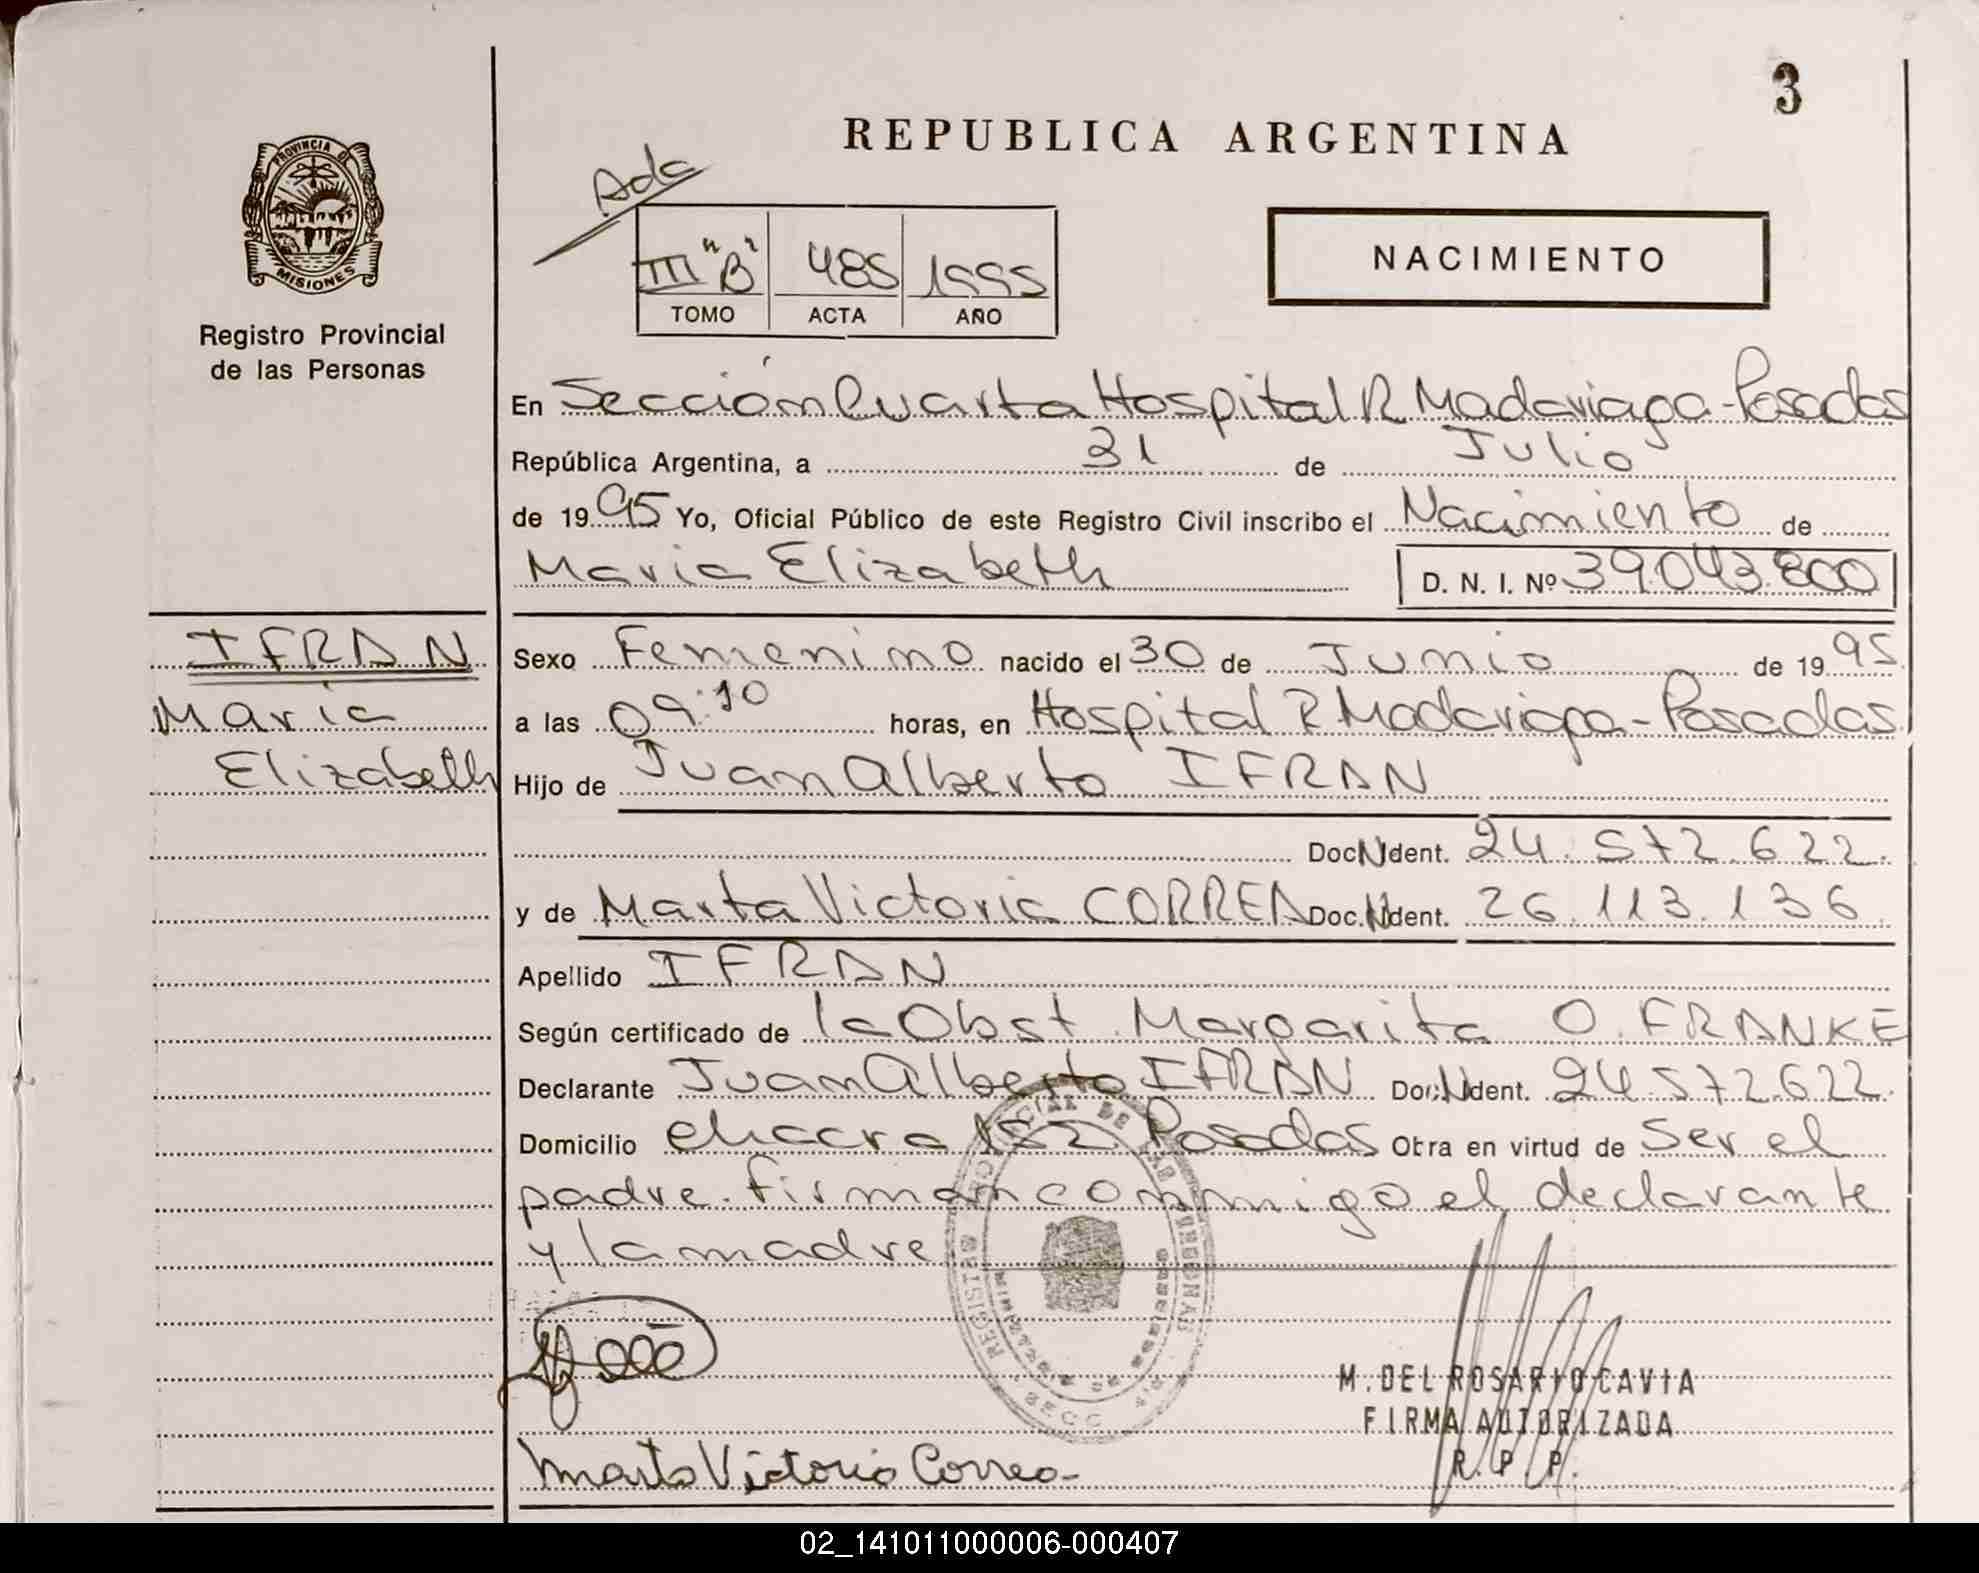 3
REPUBLICA ARGENTINA
PROVINCIA DE
MISIONES
Registro Provincial
de las Personas
Ada
III "B" 485 1995
TOMO ACTA AÑO
NACIMIENTO
En Sección Cuarta Hospital R Madariaga - Posadas
República Argentina, a 31 de Julio
de 1995 Yo, Oficial Público de este Registro Civil inscribo el Nacimiento de
Maria Elizabeth D. N. I. Nº 39.043.800
IFRAN
Maria
Elizabeth
Sexo Femenino nacido el 30 de Junio de 1995
a las 09:10 horas, en Hospital R Madariaga - Posadas
Hijo de Juan Alberto IFRAN
Doc N Ident. 24.572.622.
y de Marta Victoria CORREA Doc. N Ident. 26.113.136.
Apellido IFRAN
Según certificado de la Obst. Margarita O. FRANKE
Declarante Juan Alberto IFRAN Doc. N Ident. 24.572.622.
Domicilio chacra 152 Posadas Obra en virtud de ser el
padre. firman conmigo el declarante
y la madre
M. DEL ROSARIO CAVIA
FIRMA AUTORIZADA
R. P. P.
Marta Victoria Correa-
02_141011000006-000407